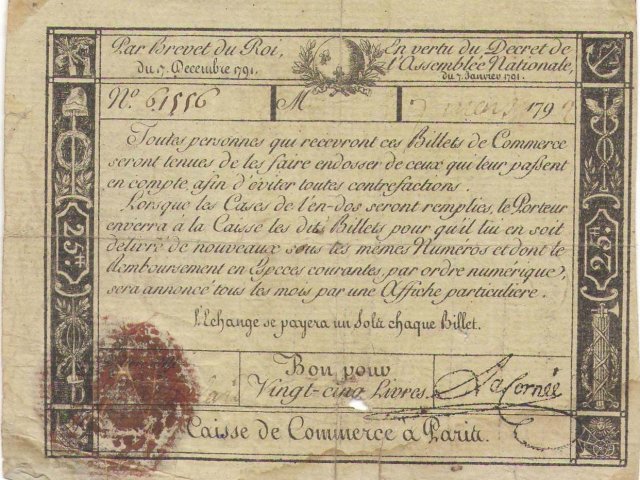 Par Brevet du Roi,
du 7. Decembre 1791.
En vertu du Decret de
l'Assemblée Nationale,
du 7. Janvier 1791.
N.º 61556
M
mars 179
Toutes personnes qui recevront ces Billets de Commerce
seront tenues de les faire endosser de ceux qui leur passent
en compte, afin d'éviter toutes contrefactions.
Lorsque les Cases de l'en-dos seront remplies, le Porteur
enverra à la Caisse les dits Billets pour qu'il lui en soit
délivré de nouveaux sous les mêmes Numéros et dont le
Remboursement en Especes courantes, par ordre numérique,
sera annoncé tous les mois par une Affiche particuliere.
L'Echange se payera un Sol à chaque Billet.
25.ᵗᵗ
25.ᵗᵗ
Bon pour
Vingt-cinq Livres.
Lacornée
Caisse de Commerce à Paris.